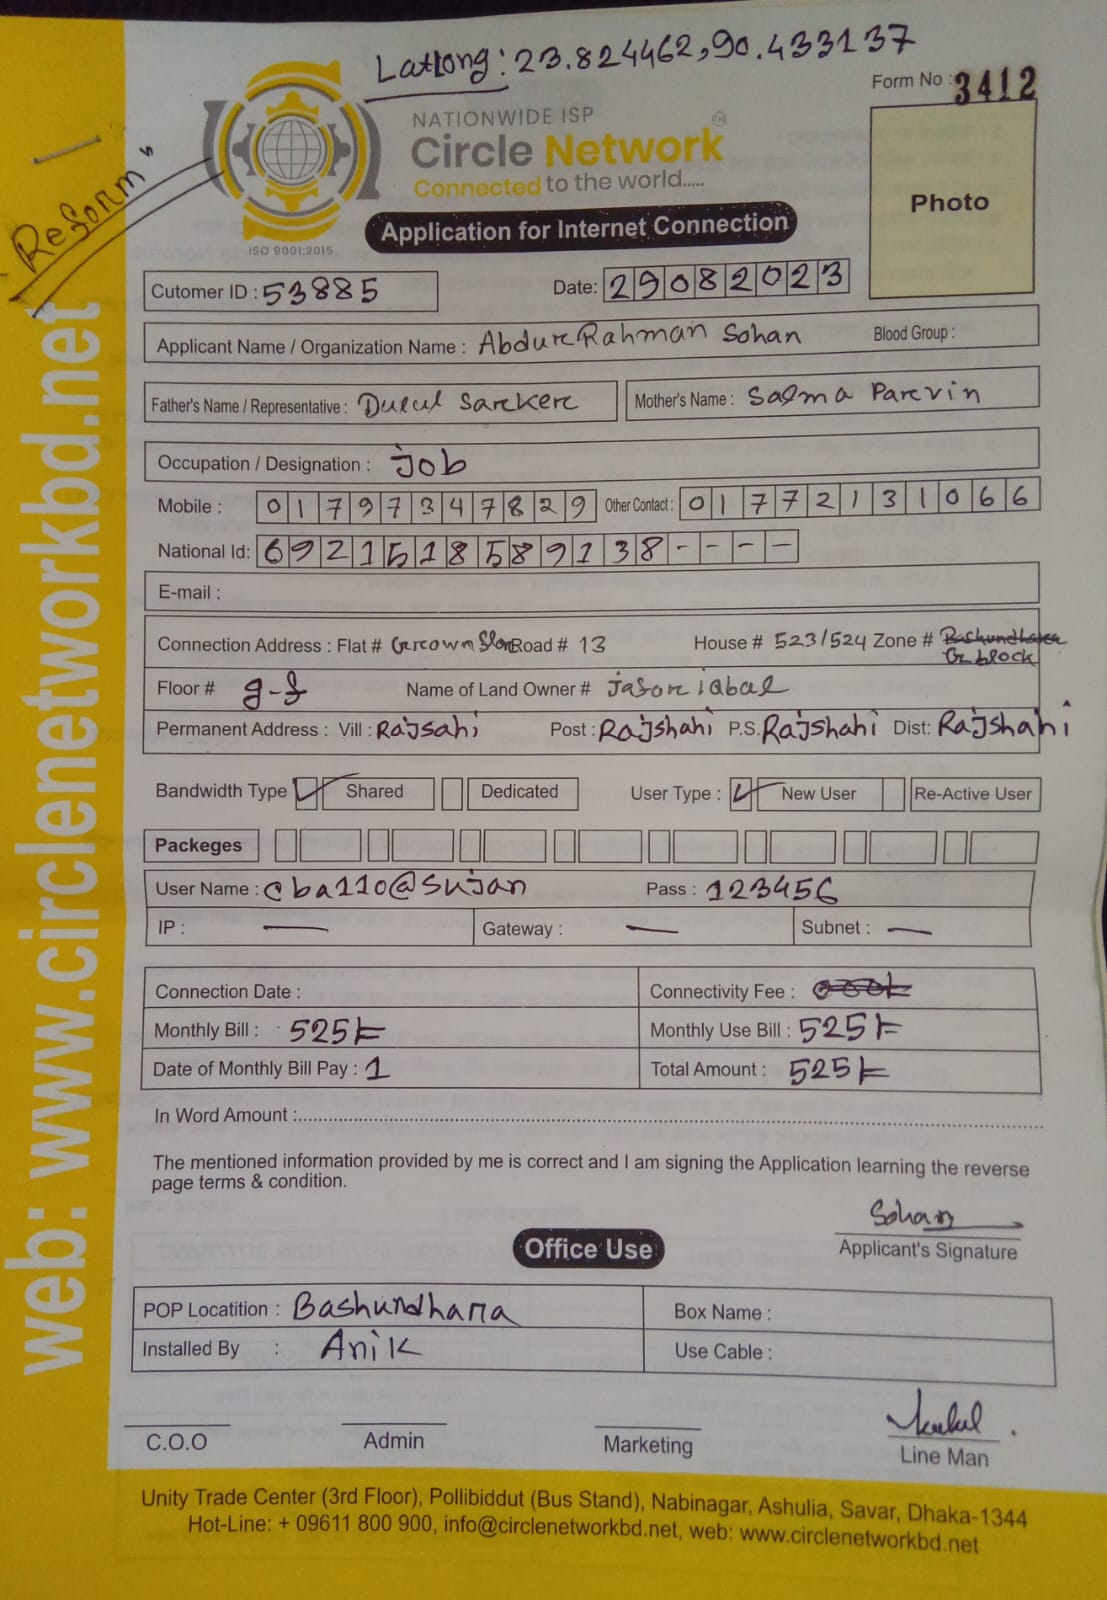 LatLong: 23.824462,90.433137
Form No : 3412
Reform
NATIONWIDE ISP
Circle Network
Connected to the world.....
ISO 9001:2015
Application for Internet Connection
Photo
Cutomer ID : 53885
Date: 29082023
Applicant Name / Organization Name : Abdur Rahman Sohan Blood Group :
Father's Name / Representative : Dulul Sarker Mother's Name : Salma Parvin
Occupation / Designation : job
Mobile : 01797347829 Other Contact : 01772131066
National Id: 6921518589138----
E-mail :
Connection Address : Flat # Road # 13 House # 523/524 Zone # Bashundhara
G block
Floor # g-f Name of Land Owner # jafor iqbal
Permanent Address : Vill : Rajsahi Post : Rajshahi P.S. Rajshahi Dist: Rajshahi
Bandwidth Type Shared Dedicated User Type : New User Re-Active User
Packeges
User Name : cba110@sujan Pass : 123456
IP : — Gateway : — Subnet : —
Connection Date : Connectivity Fee :
Monthly Bill : 525/= Monthly Use Bill : 525/=
Date of Monthly Bill Pay : 1 Total Amount : 525/=
In Word Amount :
The mentioned information provided by me is correct and I am signing the Application learning the reverse
page terms & condition.
Sohan
Applicant's Signature
Office Use
POP Locatition : Bashundhara Box Name :
Installed By : Anik Use Cable :
C.O.O Admin Marketing Line Man
Unity Trade Center (3rd Floor), Pollibiddut (Bus Stand), Nabinagar, Ashulia, Savar, Dhaka-1344
Hot-Line: + 09611 800 900, info@circlenetworkbd.net, web: www.circlenetworkbd.net
web: www.circlenetworkbd.net